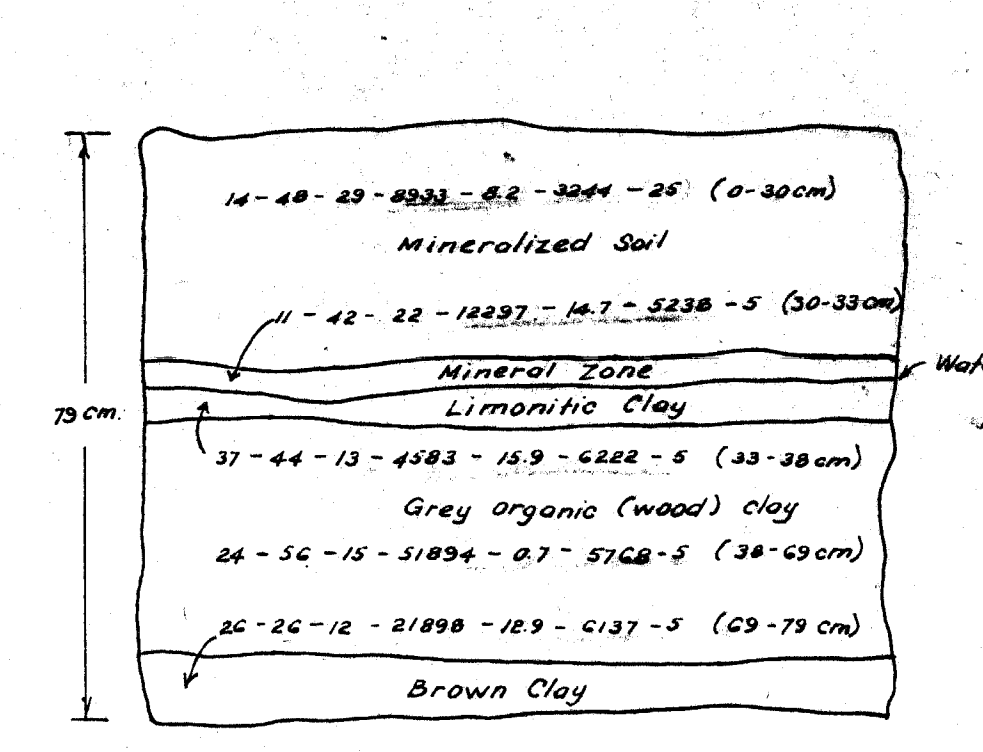 14 - 48 - 29 - 8933 - 8.2 - 3244 - 25 (0-30cm)
Mineralized Soil
11 - 42 - 22 - 12297 - 14.7 - 5238 - 5 (30-33cm)
Mineral Zone
Wat
Limonitic Clay
79 cm.
37 - 44 - 13 - 4583 - 15.9 - 6222 - 5 (33-38cm)
Grey organic (wood) clay
24 - 56 - 15 - 51894 - 0.7 - 5768 - 5 (38-69cm)
26 - 26 - 12 - 21898 - 12.9 - 6137 - 5 (69-79 cm)
Brown Clay